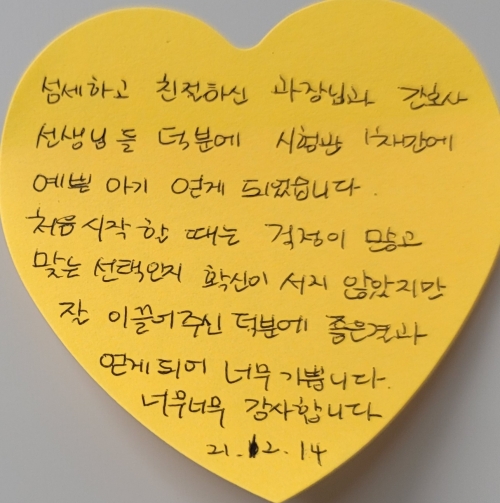 섬세하고 친절하신 과장님과 간호사
선생님들 덕분에 시험관 1차만에
예쁜 아기 얻게 되었습니다.
처음 시작 할 때는 걱정이 많고
맞는 선택인지 확신이 서지 않았지만
잘 이끌어주신 덕분에 좋은결과
얻게되어 너무 기쁩니다.
너무너무 감사합니다
21.12.14